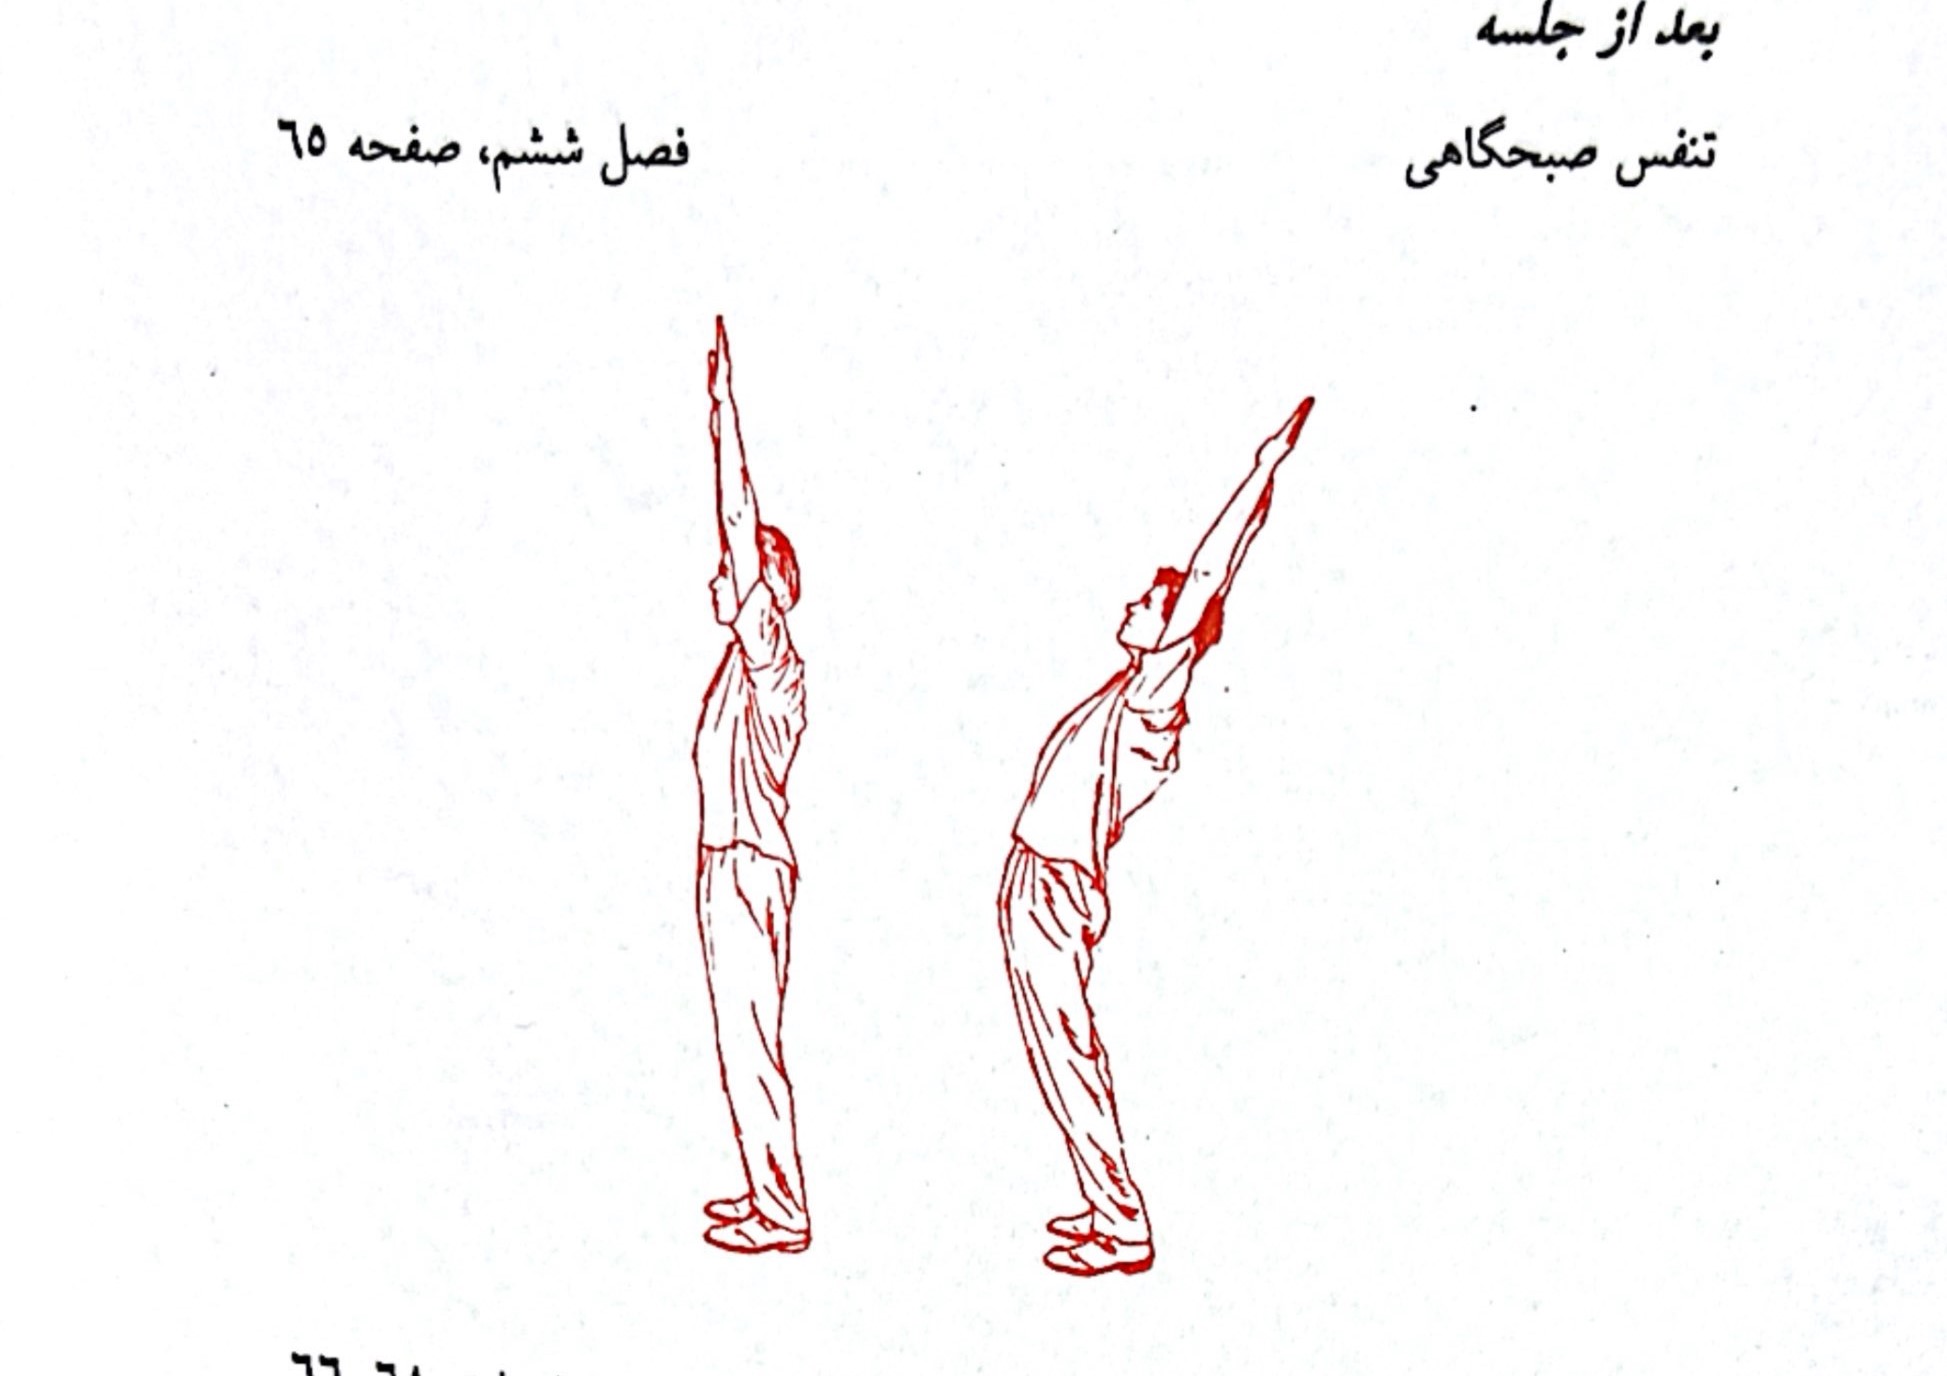 بعد از جلسه
تنفس صبحگاهی
فصل ششم، صفحه ٦٥